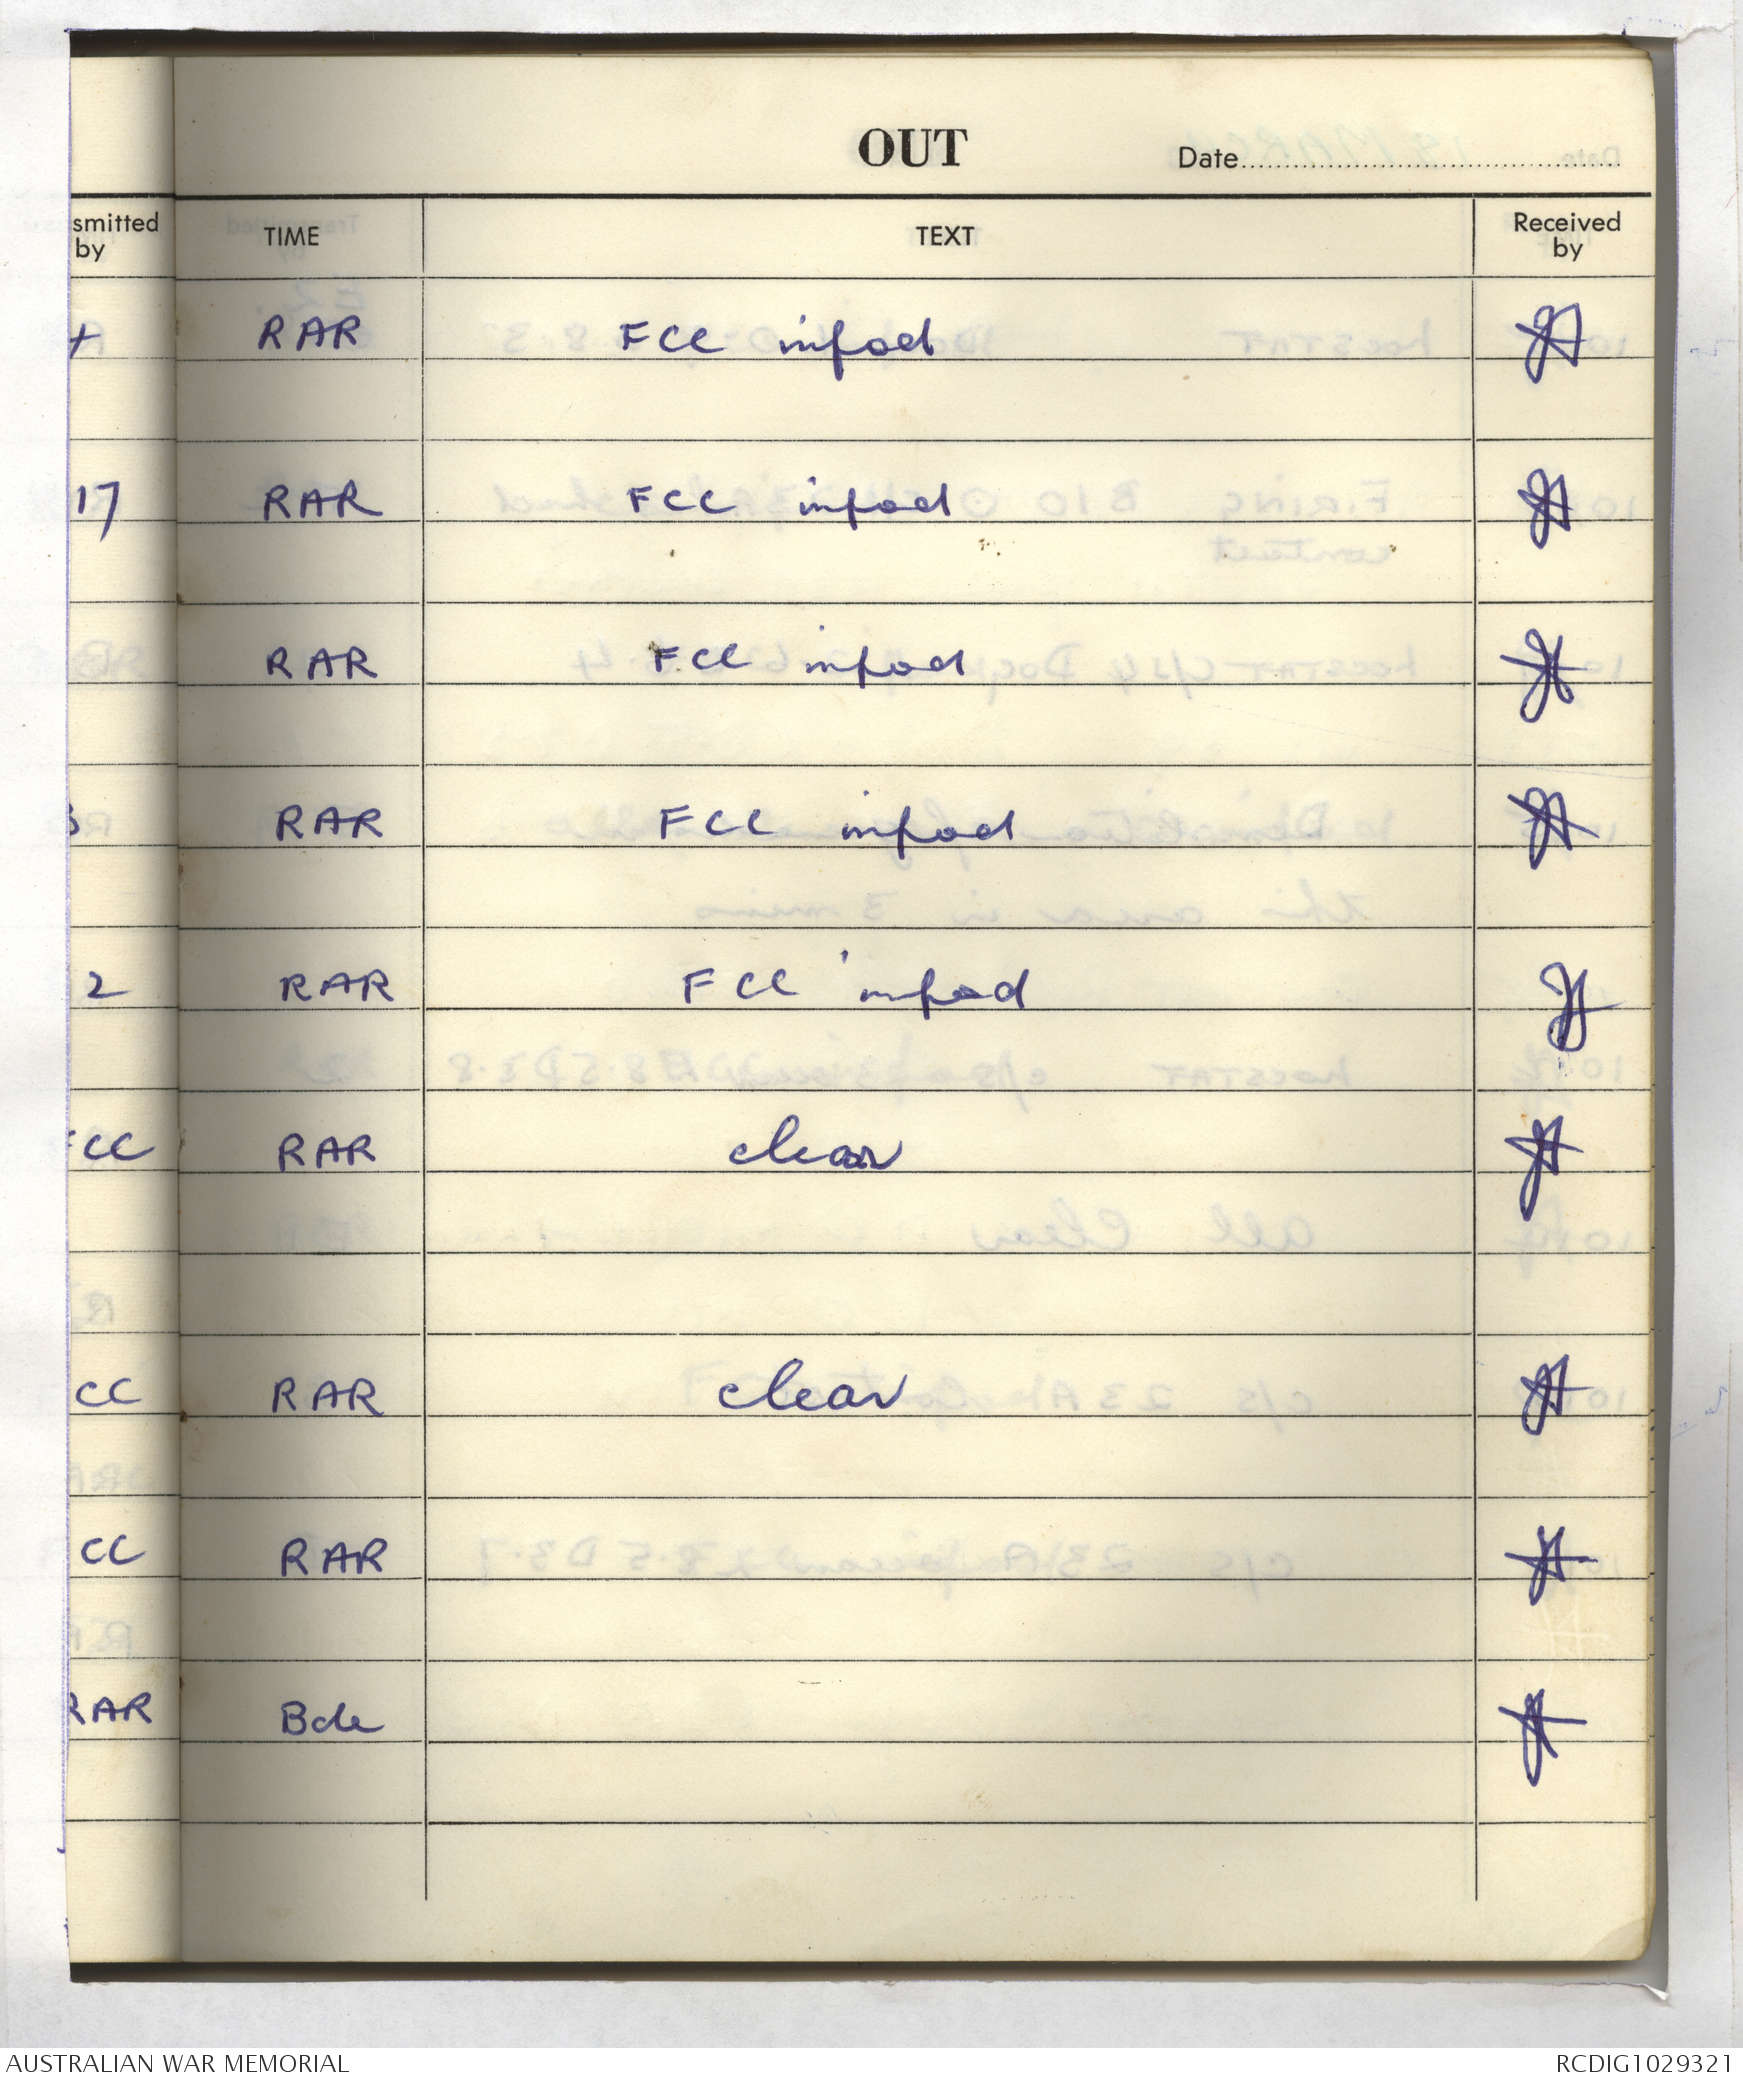 OUT
Date
smitted by TIME TEXT Received by
RAR FCC infod
17 RAR FCC infod
RAR FCC infod
RAR FCC infod
2 RAR FCC infod
CC RAR clear
CC RAR clear
CC RAR
RAR Bde
AUSTRALIAN WAR MEMORIAL RCDIG1029321